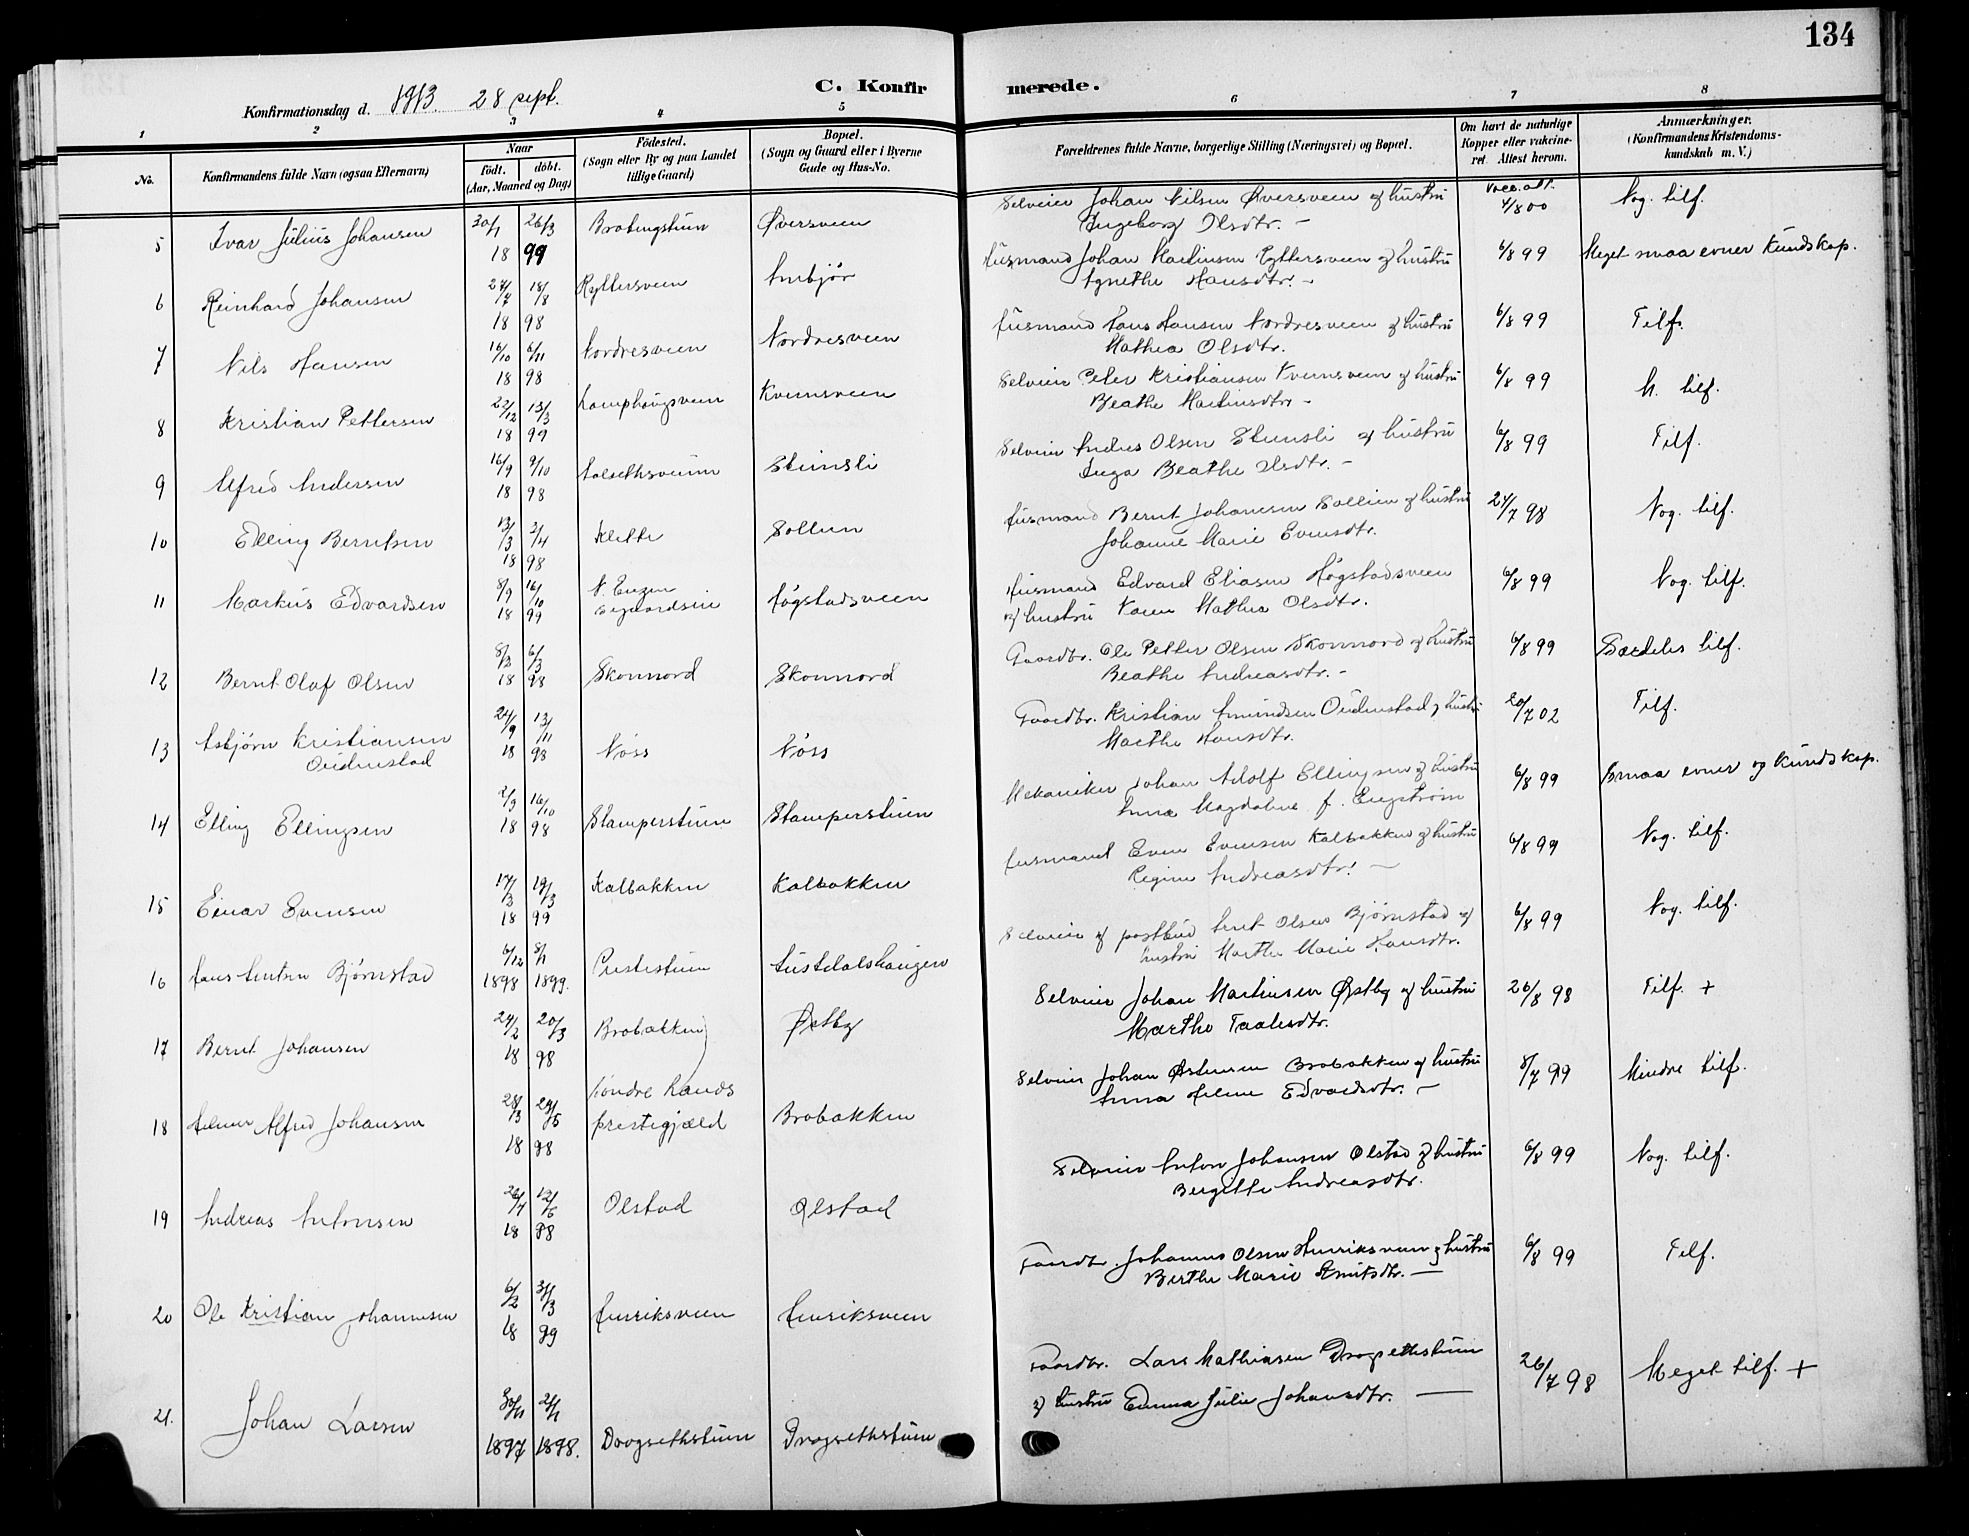 134
C. Konfirmerede.
Konfirmationsdag d. 1913. 28 sept.
1 2 3 4 5 6 7 8
No.
Konfirmandens fulde Navn (ogsaa Efternavn)
Naar
födt. döbt.
(Aar, Maaned og Dag)
Födested.
(Sogn eller By og paa Landet
tillige Gaard)
Bopæl.
(Sogn og Gaard eller i Byerne
Gade og Hus-No.
Forældrenes fulde Navne, borgerlige Stilling (Næringsvei) og Bopæl.
Om havt de naturlige
Kopper eller vakcine-
ret. Attest herom.
Anmærkninger.
(Konfirmandens Kristendoms-
kundskab m. V.)
5 Ivar Julius Johansen 30/1 26/3 18 99 Bratengstuen Øversveen Selveier Johan Nilsen Øversveen og hustru
Ingeborg Olsdtr. – Vacc. att. 4/8 00 Nog. tilf.
6 Reinhard Johansen 27/7 18/8 18 98 Ryttersveen Anbjør Husmand Johan Martinsen Ryttersveen og hustru
Agnethe Hansdtr. – 6/8 99 Meget smaa evner kundskap.
7 Nils Hansen 16/10 6/11 18 98 Nordresveen Nordresveen Husmand Hans Hansen Nordresveen og hustru
Mathea Olsdtr. 6/8 99 Tilf.
8 Kristian Pettersen 22/12 13/3 18 99 Lamphaugsveen Kvernsveen Selveier Peter Kristiansen Kvernsveen og hustru
Beathe Martinsdtr. – 6/8 99 M. tilf.
9 Alfred Andersen 16/9 9/10 18 98 Skinsli Selveier Andreas Olsen og hustru
Inga Beathe Olsdtr. – 6/8 99 Tilf.
10 Elling Berntsen 13/3 3/4 18 98 Klette Sollien Husmand Bernt Johansen Sollien og hustru
Johanne Marie Evensdtr. 27/7 98 Nog. tilf.
11 Markus Edvardsen 8/9 16/10 18 99 N. Engen Høgstadsveen Husmand Edvard Eliasen Høgstadsveen
og hustru Karen Mathea Olsdtr. 6/8 99 Nog. tilf.
12 Bernt Olaf Olsen 8/2 6/3 18 98 Skonnord Skonnord Gaardbr. Ole Petter Olsen Skonnord og hustru
Beathe Andreasdtr. – 6/8 99 Særdeles tilf.
13 Asbjørn Kristiansen
Oudenstad 24/9 13/11 18 98 Nøss Nøss Gaardbr. Kristian Amundsen Oudenstad og hustru
Marthe Hansdtr. 20/7 02 Tilf.
14 Elling Ellingsen 2/9 16/10 18 98 Stamperstuen Stamperstuen Mekaniker Johan Adolf Ellingsen og hustru
Anna Magdalene f. Engstrøm 6/8 99 Smaa evner og kundskap.
15 Einar Evensen 17/2 19/3 18 99 Kalbakken Kalbakken Husmand Even Evensen Kalbakken og hustru
Regine Andreasdtr. – 6/8 99 Nog. tilf.
16 Hans Antsen Bjørnstad 6/12 8/1 1898 1899. Prestestuen Austdalshaugen Selveier og postbud Arnt Olsen Bjørnstad og
hustru Marthe Marie Hansdtr. 6/8 99 Nog. tilf.
17 Bernt Johansen 24/2 20/3 18 98 Brobakken Østby Selveier Johan Martinsen Østby og hustru
Marthe Paalsdtr. 26/8 98 Tilf. +
18 Helmer Alfred Johansen 28/3 29/5 18 98 Søndre Lands
prestegjæld Brobakken Selveier Johan Østensen Brobakken og hustru
Anna Helene Edvardsdtr. – 8/7 99 Mindre tilf.
19 Andreas Antonsen 26/4 12/6 18 98 Olstad Olstad Selveier Anton Johansen Olstad og hustru
Bergitte Andreasdtr. 6/8 99 Nog. tilf.
20 Ole Kristian Johannesen 6/2 31/3 18 99 Henriksveen Henriksveen Gaardbr. Johannes Olsen Henriksveen og hustru
Berthe Marie Knutsdtr. – 6/8 99 Tilf.
21. Johan Larsen 30/11 21/1 1897 1898. Dragsethstuen Dragsethstuen Gaardbr. Lars Mathiasen Dragsethstuen
og hustru Emma Julie Johansdtr. – 26/7 98 Meget tilf. +